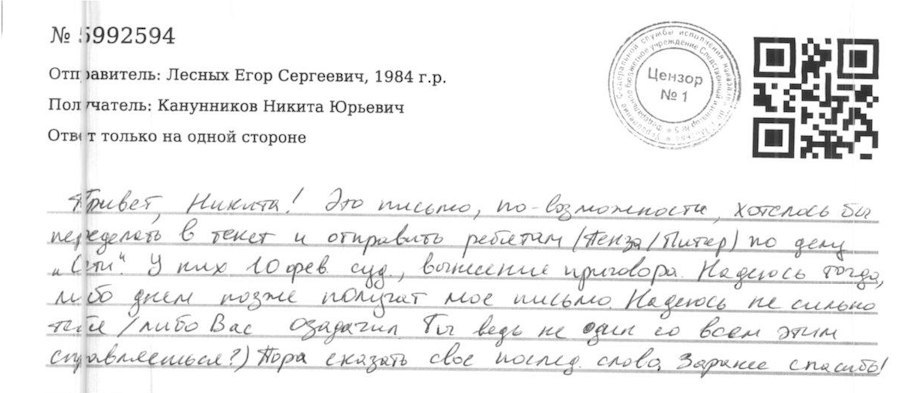 № 5992594
Отправитель: Лесных Егор Сергеевич, 1984 г.р.
Получатель: Канунников Никита Юрьевич
Ответ только на одной стороне
Цензор
№ 1
Привет, Никита! Это письмо, по-возможности, хотелось бы
переделать в текст и отправить ребятам (Пенза/Питер) по делу
„Сети". У них 10 фев. суд, вынесение приговора. Надеюсь тогда,
либо днем позже получат мое письмо. Надеюсь не сильно
тебя/либо Вас озадачил. Ты ведь не один со всем этим
справляешься?) Пора сказать свое послед. слово. Заранее спасибо!